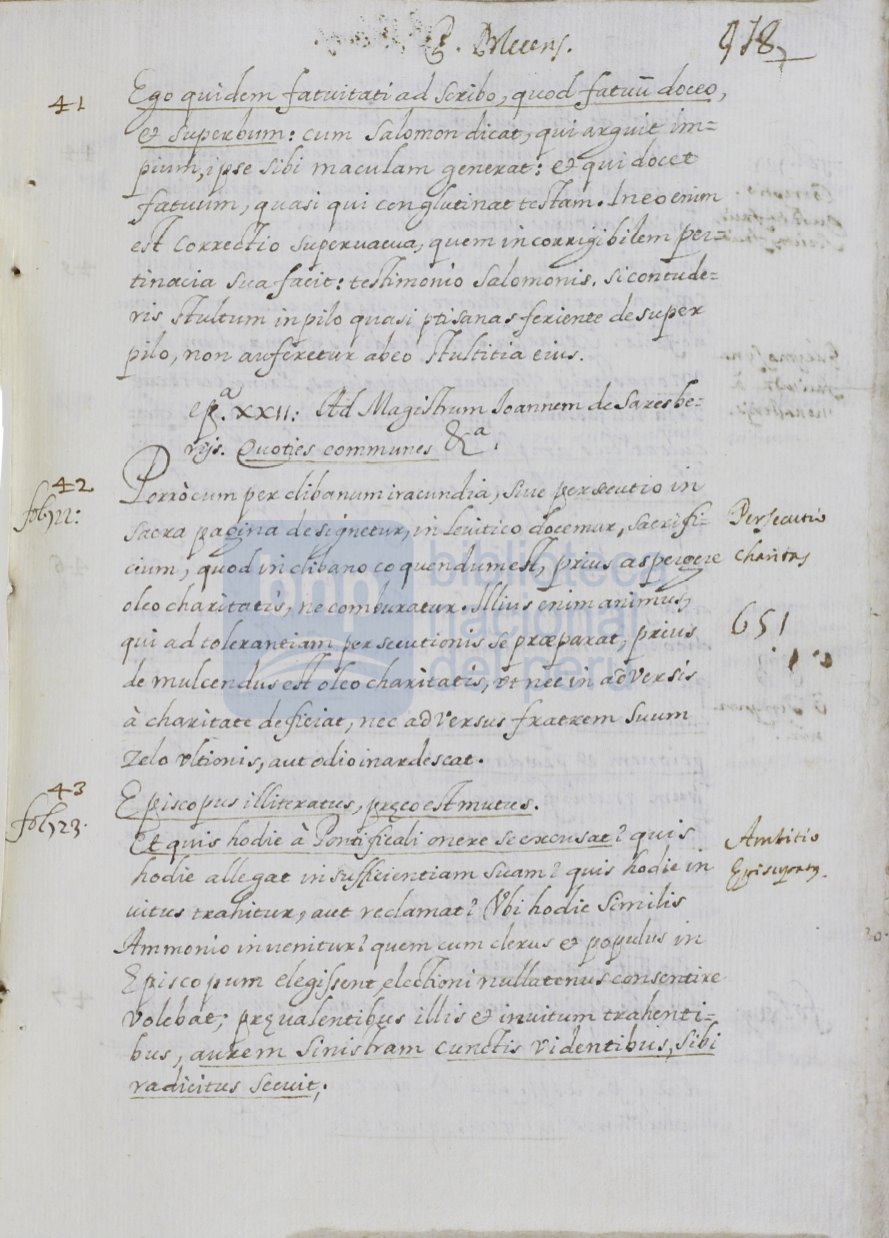 978
41
Ego quidem fatuitati adscribo, quod fatuū doceo,
& superbum: cum Salomon dicat, qui arguit im=
pium, ipse sibi maculam generat: & qui docet
fatuum, quasi qui conglutinat testam. In eo enim
est correctio supervacua, quem incorrigibilem per=
tinacia sua facit: testimonio Salomonis. si contude=
ris stultum in pilo quasi ptisanas feriente desuper
pilo, non auferetur ab eo stultitia eius.
epª. XXII: Ad Magistrum Ioannem de Saresbe=
rijs. Quoties communes &ª.
42
fol. 22:
Porrò cum per clibanum iracundia, siue persecutio in
sacra pagina designetur, in levitico docemur, sacrifi=
cium, quod in clibano coquendum est, prius aspergere
oleo charitatis, ne comburatur. Illius enim animus,
qui ad tolerantiam persecutionis se præparat, prius
demulcendus est oleo charitatis, vt nec in adversis
à charitate deficiat, nec adversus fratrem suum
zelo vltionis, aut odio inardescat.
Persecutio
charitas
651
43
fol. 23.
Episcopus illiteratus, pręco est mutus.
Et quis hodie à Pontificali onere se excusat? quis
hodie allegat insufficientiam suam? quis hodie in
uitus trahitur, aut reclamat? Vbi hodie similis
Ammonio inuenitur? quem cum clerus & populus in
Episcopum elegissent, electioni nullatenus consentire
volebat; pręualentibus illis & inuitum trahenti=
bus, aurem sinistram cunctis videntibus, sibi
radicitus secuit.
Ambitio
Episcoporum.
biblioteca
nacional
del perú